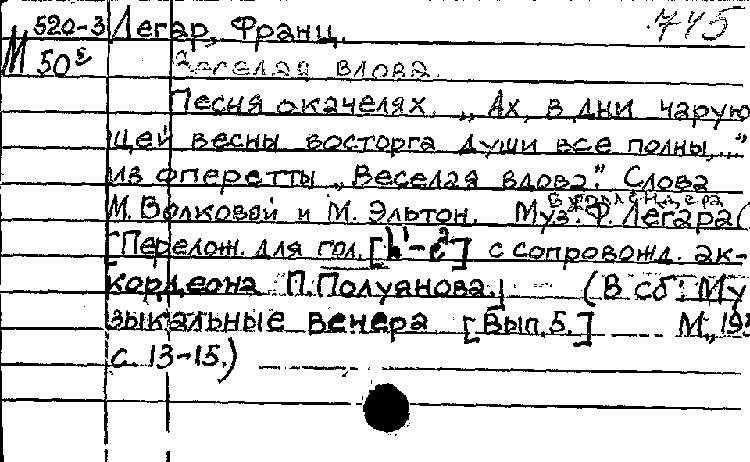 520-3 Легар, Франц. 745
М 50
Веселая вдова.
Песня о качелях. „Ах, в дни чарую
щей весны восторга души все полны,..."
из оперетты „Веселая вдова". Слова
М. Волковой и М. Эльтон. Муз. Ф. Легара
[Перелож. для гол. [h¹-e²] с сопровожд. ак-
кордеона П. Полуянова. (В сб: Му
зыкальные вечера [Вып. 5.] М., 195
с. 13-15.)